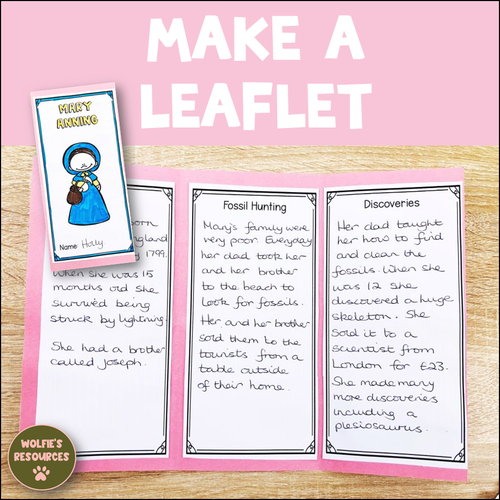 MAKE A
LEAFLET
MARY
ANNING
Name: Holly
orn
England
y 1799.
When she was 15
months old she
survived being
struck by lightning.
She had a brother
called Joseph.
Fossil Hunting
Mary's family were
very poor. Everyday
her dad took her
and her brother
to the beach to
look for fossils.
Her and her brother
sold them to the
tourists from a
table outside
of their home.
Discoveries
Her dad taught
her how to find
and clean the
fossils. When she
was 12 she
discovered a huge
skeleton. She
sold it to a
scientist from
London for £23.
She made many
more discoveries
including a
plesiosaurus.
WOLFIE'S
RESOURCES